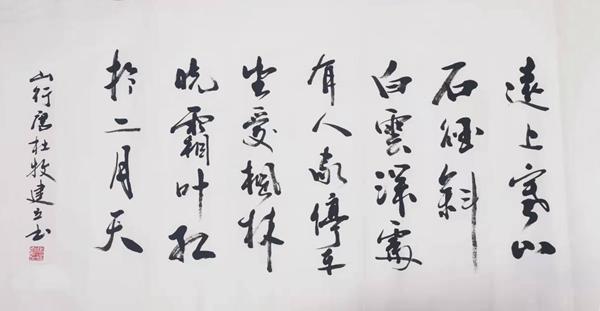 遠上寒山
石径斜
白雲深處
有人家停车
坐愛楓林
晚霜叶红
於二月天
山行唐杜牧建立书